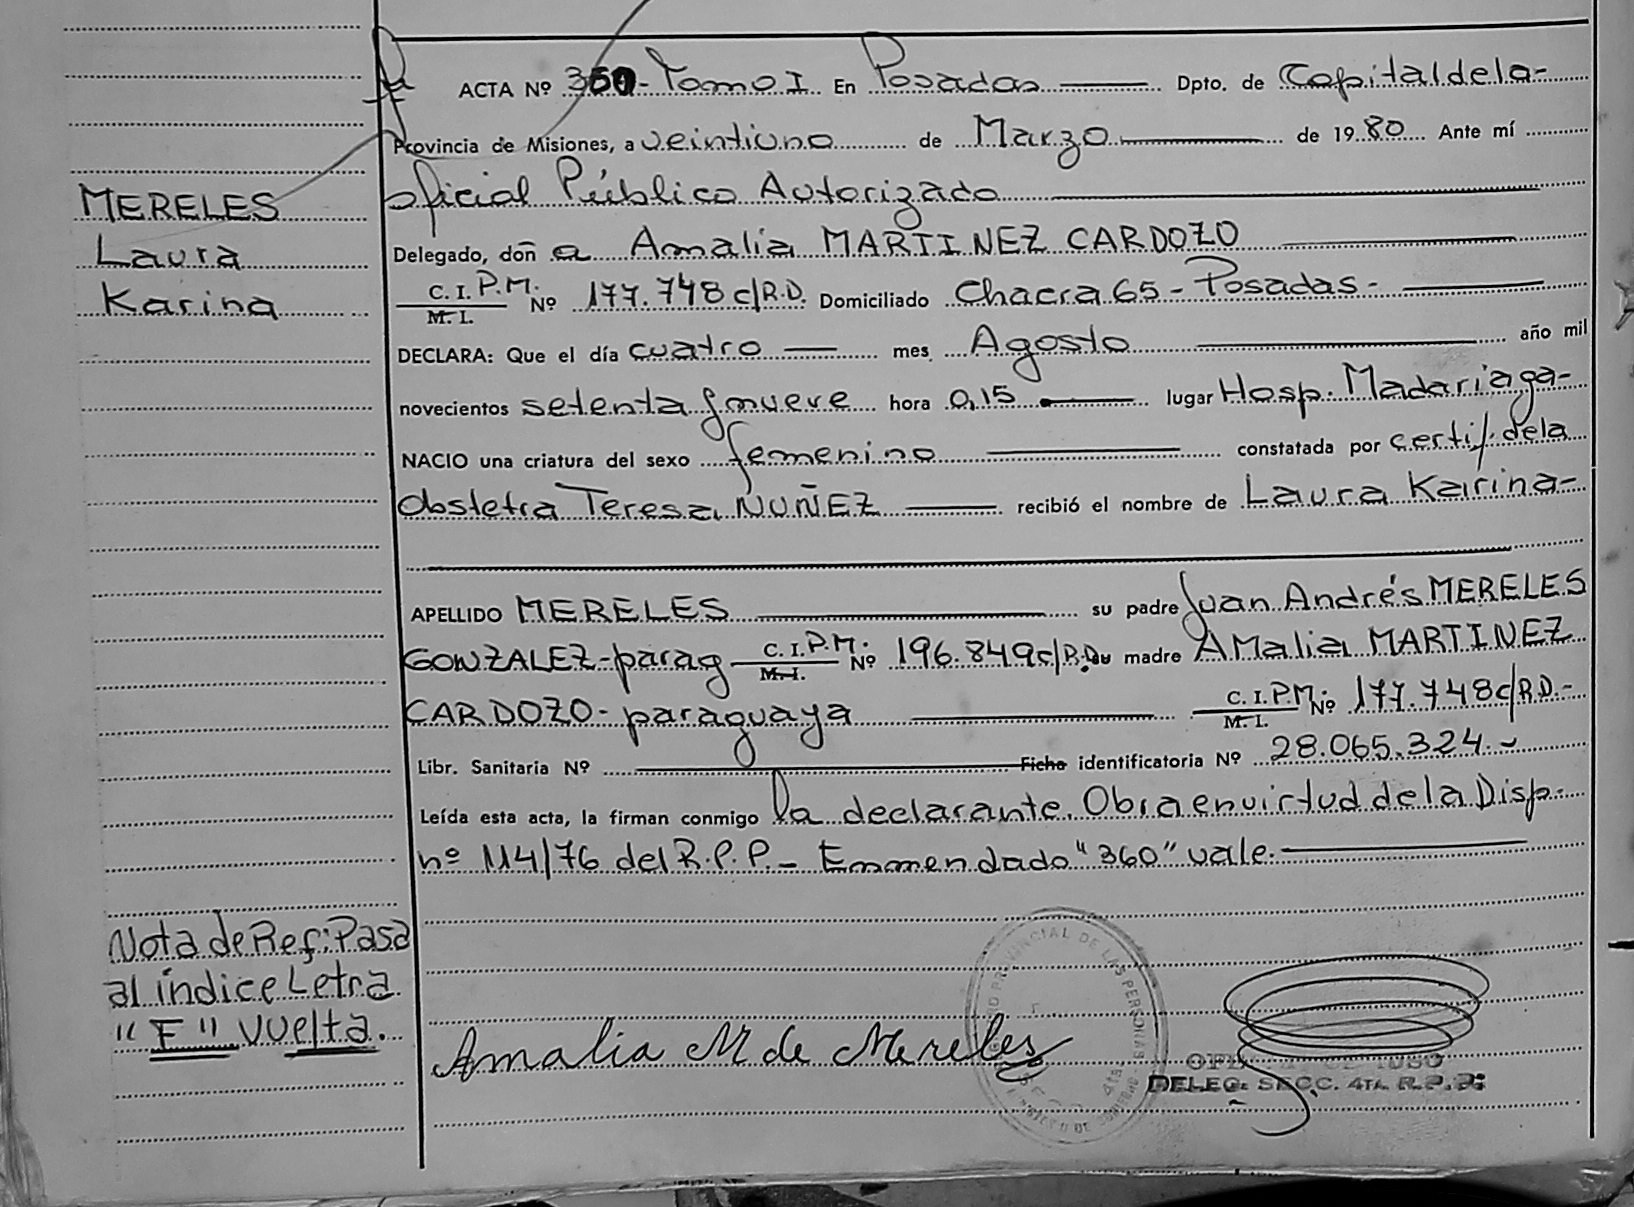 ACTA Nº 360- Tomo I. En Posadas Dpto. de Capital de la-
Provincia de Misiones, a veintiuno de Marzo de 1980 Ante mí
Oficial Público Autorizado
Delegado, doñ a Amalia MARTINEZ CARDOZO
C. I. P.M. Nº 177.748 c/R.D. Domiciliado Chacra 65 - Posadas -
M. I.
DECLARA: Que el día cuatro mes Agosto año mil
novecientos setenta y nueve hora 0,15 lugar Hosp. Madariaga-
NACIO una criatura del sexo femenino constatada por certif. de la
Obstetra Teresa NUÑEZ recibió el nombre de Laura Karina-
APELLIDO MERELES su padre Juan Andrés MERELES
GONZALEZ-parag C. I. P.M. Nº 196.849 c/R.D. su madre AMalia MARTINEZ
M. I.
CARDOZO - paraguaya C. I. P.M. Nº 177.748 c/R.D.-
M. I.
Libr. Sanitaria Nº Ficha identificatoria Nº 28.065.324.-
Leída esta acta, la firman conmigo la declarante. Obra en virtud de la Disp.
nº 114/76 del R.P.P.- Enmendado "360" vale.
Amalia M de Mereles
DELEG. SECC. 4TA. R.P.P.
MERELES
Laura
Karina
Nota de Ref: Pasa
al índice Letra
"F" vuelta.